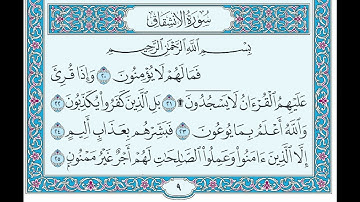 سُورَةُ الانْشِقَاقِ
بِسْمِ اللَّهِ الرَّحْمَٰنِ الرَّحِيمِ
فَمَا لَهُمْ لَا يُؤْمِنُونَ ٢٠ وَإِذَا قُرِئَ
عَلَيْهِمُ الْقُرْءَانُ لَا يَسْجُدُونَ ۩ ٢١ بَلِ الَّذِينَ كَفَرُوا يُكَذِّبُونَ ٢٢
وَاللَّهُ أَعْلَمُ بِمَا يُوعُونَ ٢٣ فَبَشِّرْهُم بِعَذَابٍ أَلِيمٍ ٢٤
إِلَّا الَّذِينَ ءَامَنُوا وَعَمِلُوا الصَّٰلِحَٰتِ لَهُمْ أَجْرٌ غَيْرُ مَمْنُونٍۭ ٢٥
٩